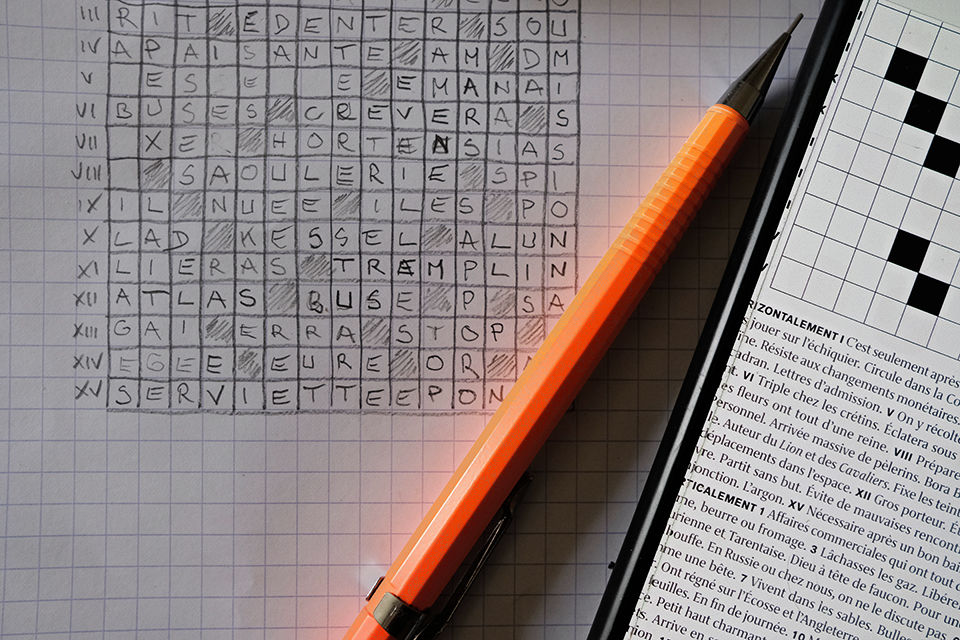 III RIT EDENTER SOU
IV APAISANTE AM DM
V ES E E EMANAI
VI BUSES CREVERA S
VII XER HORTENSIAS
VIII SAOULERIE SPI
IX IL NUEE ILES PO
X LAD KESSEL ALUN
XI LIERAS TREMPLIN
XII ATLAS BUSE P SA
XIII GAI ERRA STOP
XIV EGEE EURE OR
XV SERVIETTEEPON
RIZONTALEMENT I C'est seulement après
jouer sur l'échiquier. Circule dans la Co
ine. Résiste aux changements monétaire
adran. Lettres d'admission. V On y récolte
t. VI Triple chez les crétins. Éclatera sous
es fleurs ont tout d'une reine. VIII Prépare
ersonnel. Arrivée massive de pèlerins. Bora B
Auteur du Lion et des Cavaliers. Fixe les tein
déplacements dans l'espace. XII Gros porteur. É
re. Partit sans but. Évite de mauvaises rencont
njonction. L'argon. XV Nécessaire après un bon ba
RTICALEMENT 1 Affaires commerciales qui ont tout
ne, beurre ou fromage. 3 Lâchasses les gaz. Libére
urienne et Tarentaise. Dieu à tête de faucon. Pour un
pouffe. En Russie ou chez nous, on ne le discute pas
me une bête. 7 Vivent dans les sables. Bu
Ont régné sur l'Écosse et l'Angleter
euilles. En fin de journée.
ts. Petit haut charman
Arrive en s